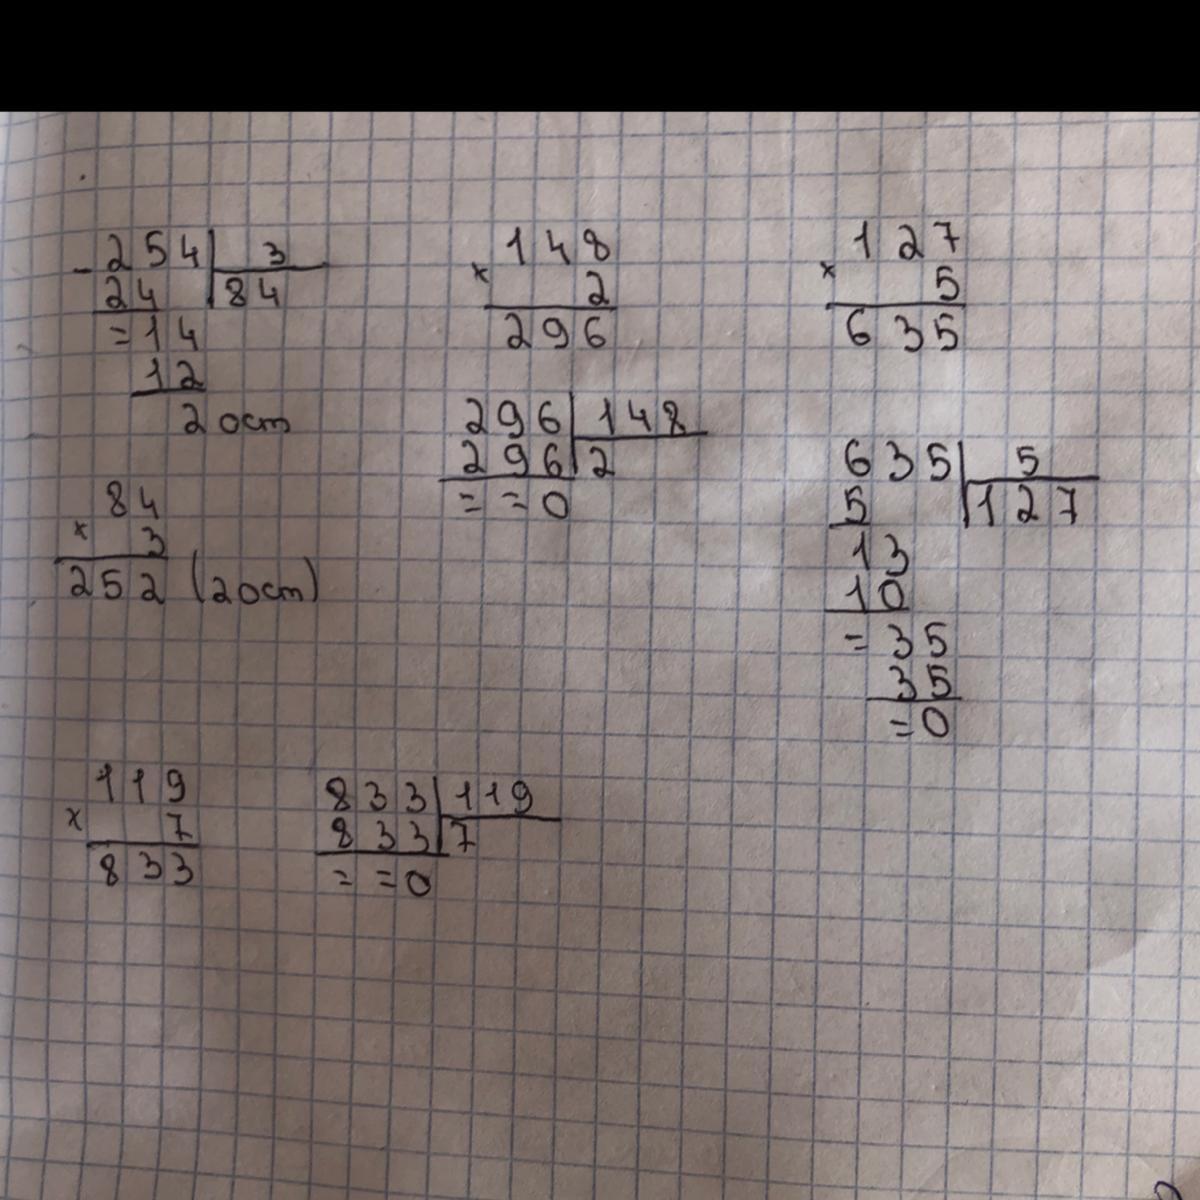 - 254 | 3
24 | 84
= 14
12
2 ост
84
× 3
252 (2 ост)
148
× 2
296
296 | 148
296 | 2
= = 0
127
× 5
635
635 | 5
5 | 127
13
10
= 35
35
= 0
119
× 7
833
833 | 119
833 | 7
= = 0